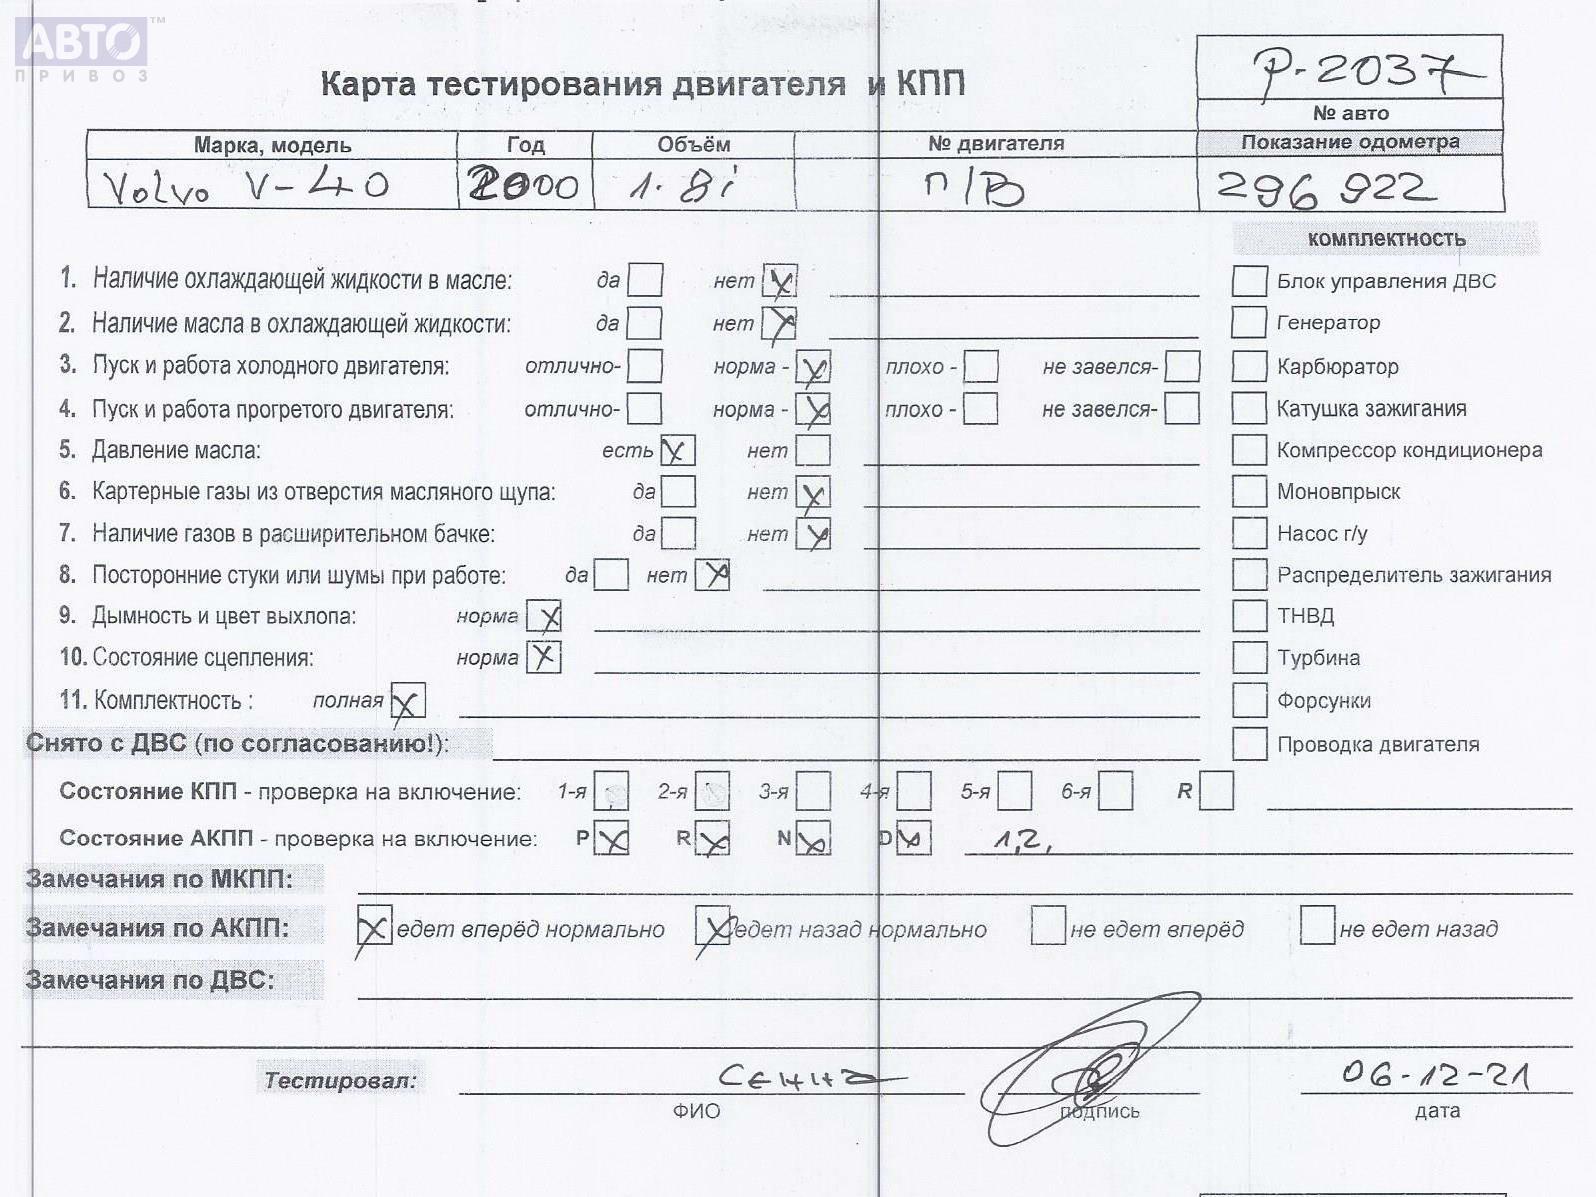 АВТО™
ПРИВОЗ
Карта тестирования двигателя и КПП
P-2037
№ авто
Марка, модель Год Объём № двигателя Показание одометра
Volvo V-40 2000 1.8i п/В 296 922
комплектность
1. Наличие охлаждающей жидкости в масле: да нет Блок управления ДВС
2. Наличие масла в охлаждающей жидкости: да нет Генератор
3. Пуск и работа холодного двигателя: отлично- норма - плохо - не завелся- Карбюратор
4. Пуск и работа прогретого двигателя: отлично- норма - плохо - не завелся- Катушка зажигания
5. Давление масла: есть нет Компрессор кондиционера
6. Картерные газы из отверстия масляного щупа: да нет Моновпрыск
7. Наличие газов в расширительном бачке: да нет Насос г/у
8. Посторонние стуки или шумы при работе: да нет Распределитель зажигания
9. Дымность и цвет выхлопа: норма ТНВД
10. Состояние сцепления: норма Турбина
11. Комплектность : полная Форсунки
Снято с ДВС (по согласованию!): Проводка двигателя
Состояние КПП - проверка на включение: 1-я 2-я 3-я 4-я 5-я 6-я R
Состояние АКПП - проверка на включение: P R N D 1,2,
Замечания по МКПП:
Замечания по АКПП: едет вперёд нормально едет назад нормально не едет вперёд не едет назад
Замечания по ДВС:
Тестировал: 06-12-21
ФИО подпись дата